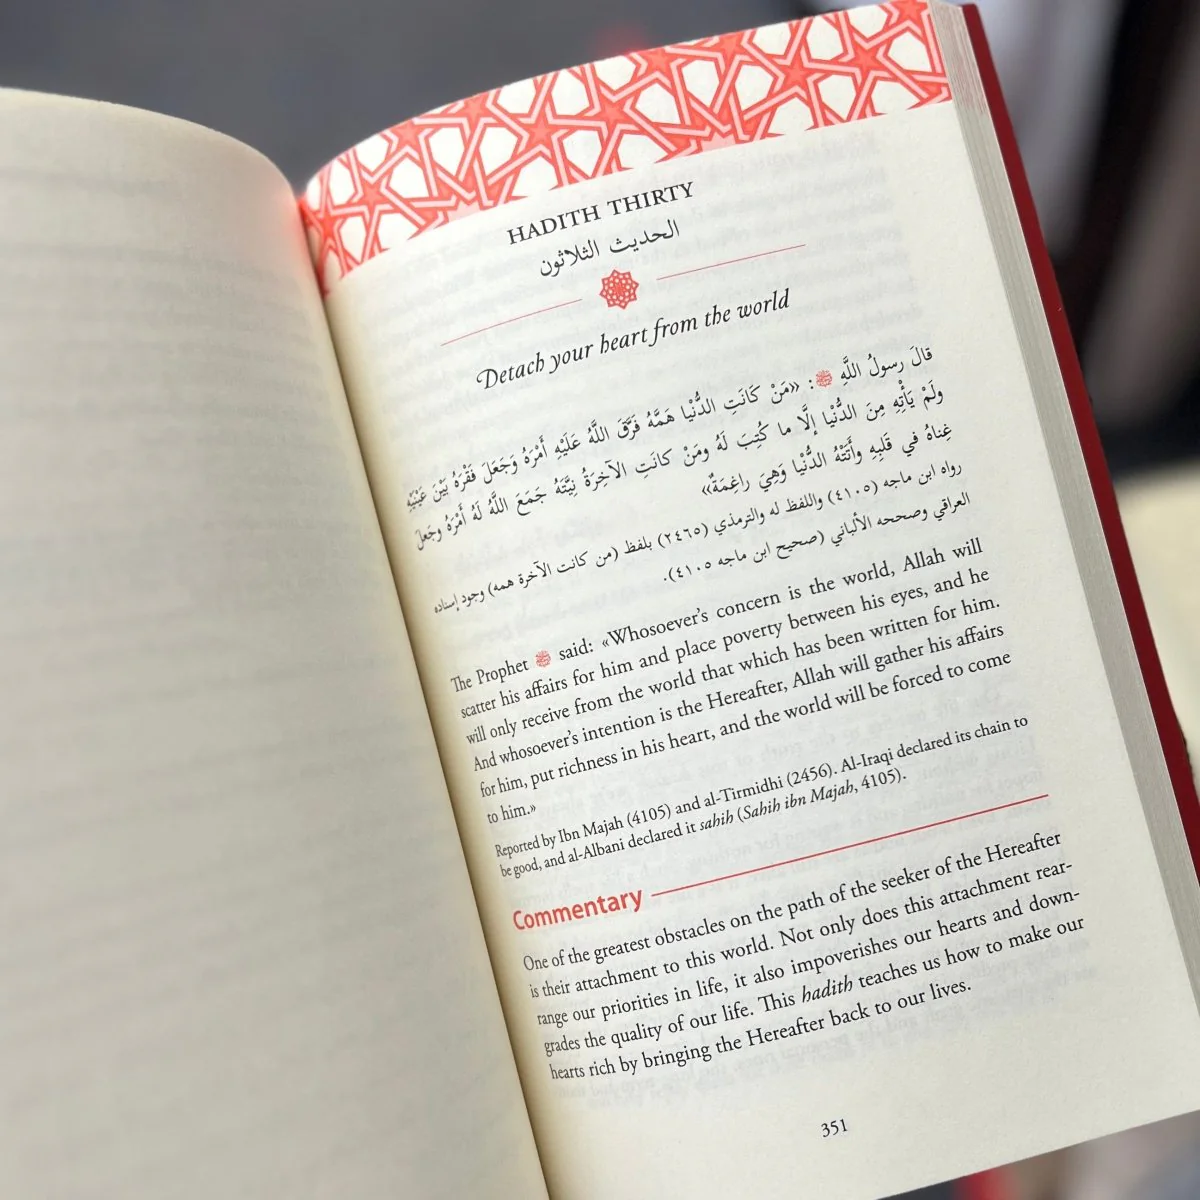 HADITH THIRTY
الحديث الثلاثون
Detach your heart from the world
قالَ رسولُ اللَّهِ ﷺ: «مَنْ كَانَتِ الدُّنْيا هَمَّهُ فَرَّقَ اللَّهُ عَلَيْهِ أَمْرَهُ وَجَعَلَ فَقْرَهُ بَيْنَ عَيْنَيْهِ
ولَمْ يَأْتِهِ مِنَ الدُّنْيا إلَّا ما كُتِبَ لَهُ ومَنْ كانَتِ الآخِرَةُ نِيَّتَهُ جَمَعَ اللَّهُ لَهُ أَمْرَهُ وجَعلَ
غِناهُ في قَلبِهِ وأَتَتْهُ الدُّنْيا وَهِيَ راغِمَةٌ»
رواه ابن ماجه (٤١٠٥) واللفظ له والترمذي (٢٤٦٥) بلفظ (من كانت الآخرة همه) وجود إسناده
العراقي وصححه الألباني (صحيح ابن ماجه ٤١٠٥).
The Prophet ﷺ said: «Whosoever's concern is the world, Allah will
scatter his affairs for him and place poverty between his eyes, and he
will only receive from the world that which has been written for him.
And whosoever's intention is the Hereafter, Allah will gather his affairs
for him, put richness in his heart, and the world will be forced to come
to him.»
Reported by Ibn Majah (4105) and al-Tirmidhi (2456). Al-Iraqi declared its chain to
be good, and al-Albani declared it sahih (Sahih ibn Majah, 4105).
Commentary
One of the greatest obstacles on the path of the seeker of the Hereafter
is their attachment to this world. Not only does this attachment rear-
range our priorities in life, it also impoverishes our hearts and down-
grades the quality of our life. This hadith teaches us how to make our
hearts rich by bringing the Hereafter back to our lives.
351